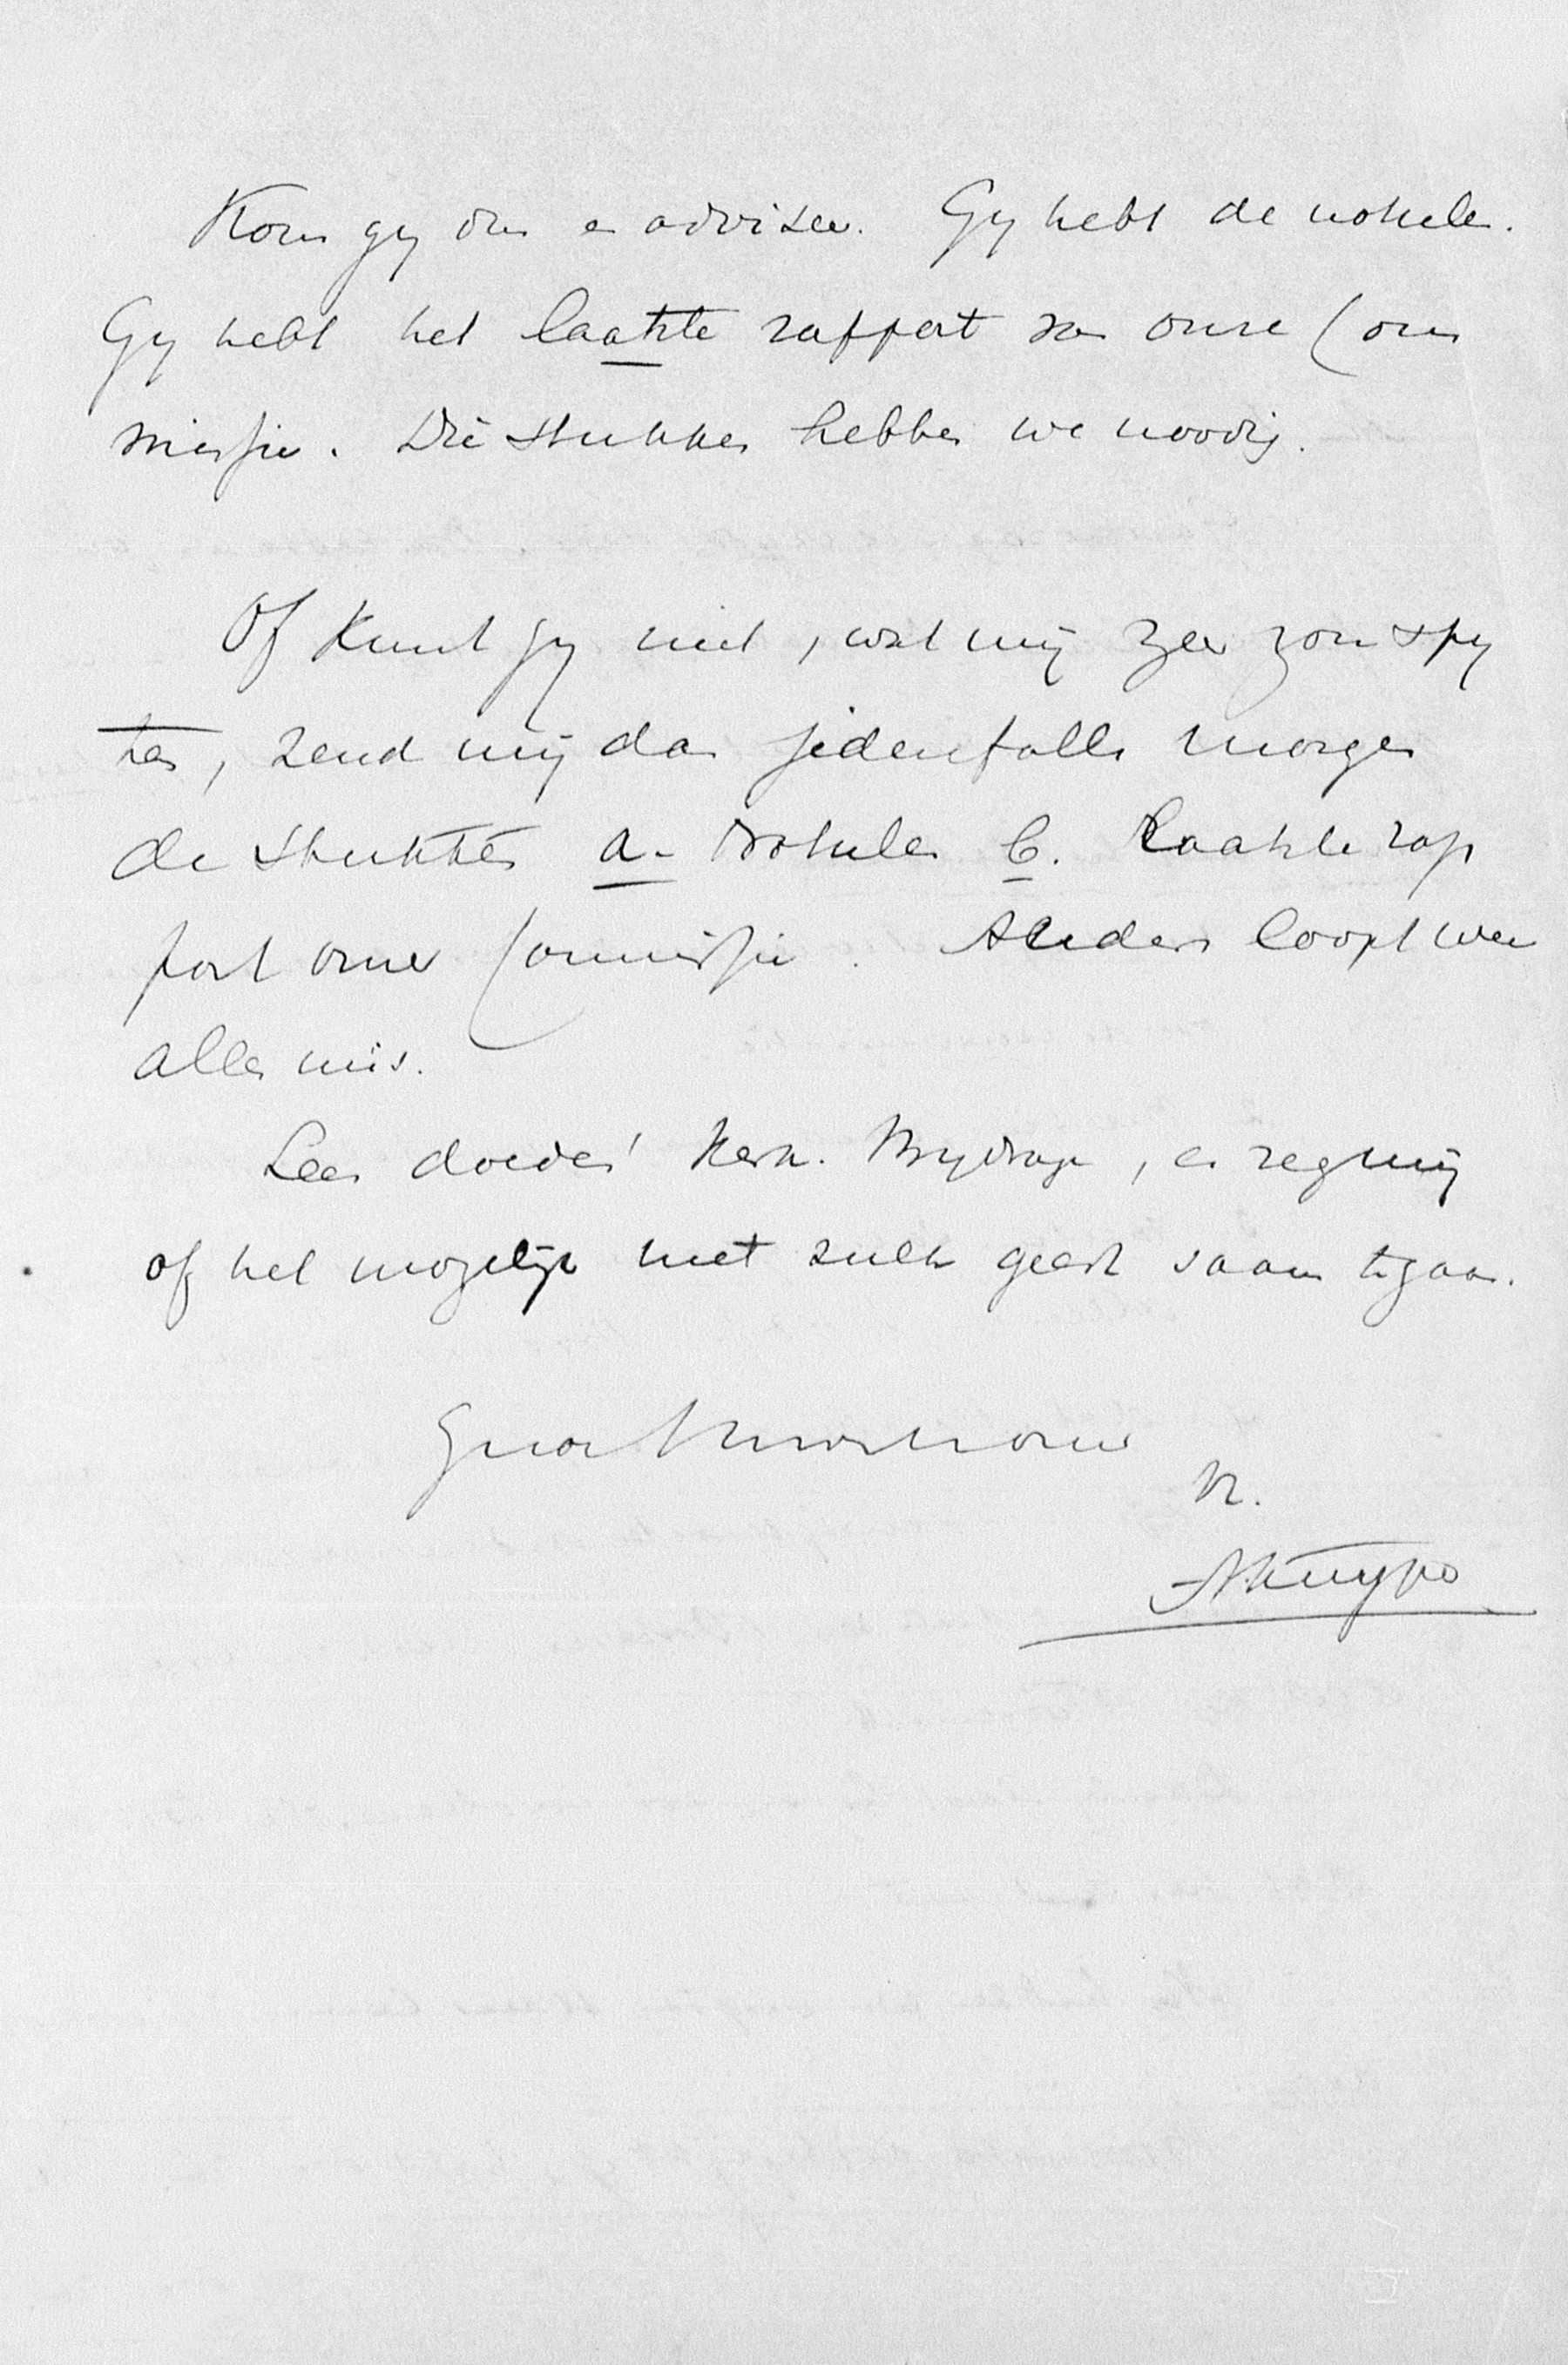 Kom gy dus en adviseer. Gy hebt de notulen.
Gy hebt het laatste rapport van onze Com
missie. Die stukken hebben we noodig.
Of kunt gy niet, wat mij zeer zou spy
ten, zend mij dan jedenfalls morgen
de stukken a. Notulen b. Laatste rap
port onzer Commissie. Anders loopt weer
alles mis.
Lees Doedes' Kerk. Bydrage, en zeg mij
of het mogelijk met zulk geest saam te gaan.
t.
AKuyper